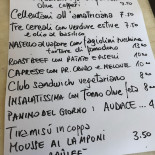 olive, capperi
Cellentani all'amatriciana 7.50
Tre cereali con verdure estive
e olio al basilico 7.50
NASELLO al vapore con Fagiolini zucchine
tartare di pomodoro 13
ROAST BEEF con PATATE e PISELLI 10
CAPRESE con PR. CRUDO e MELONE
Club sandwich vegetariano
INSALATISSIMA con TONNO olive feta 8
PANINO DEL GIORNO: AUDACE
Tiramisù in coppa
MOUSSE AI LAMPONI 3.50